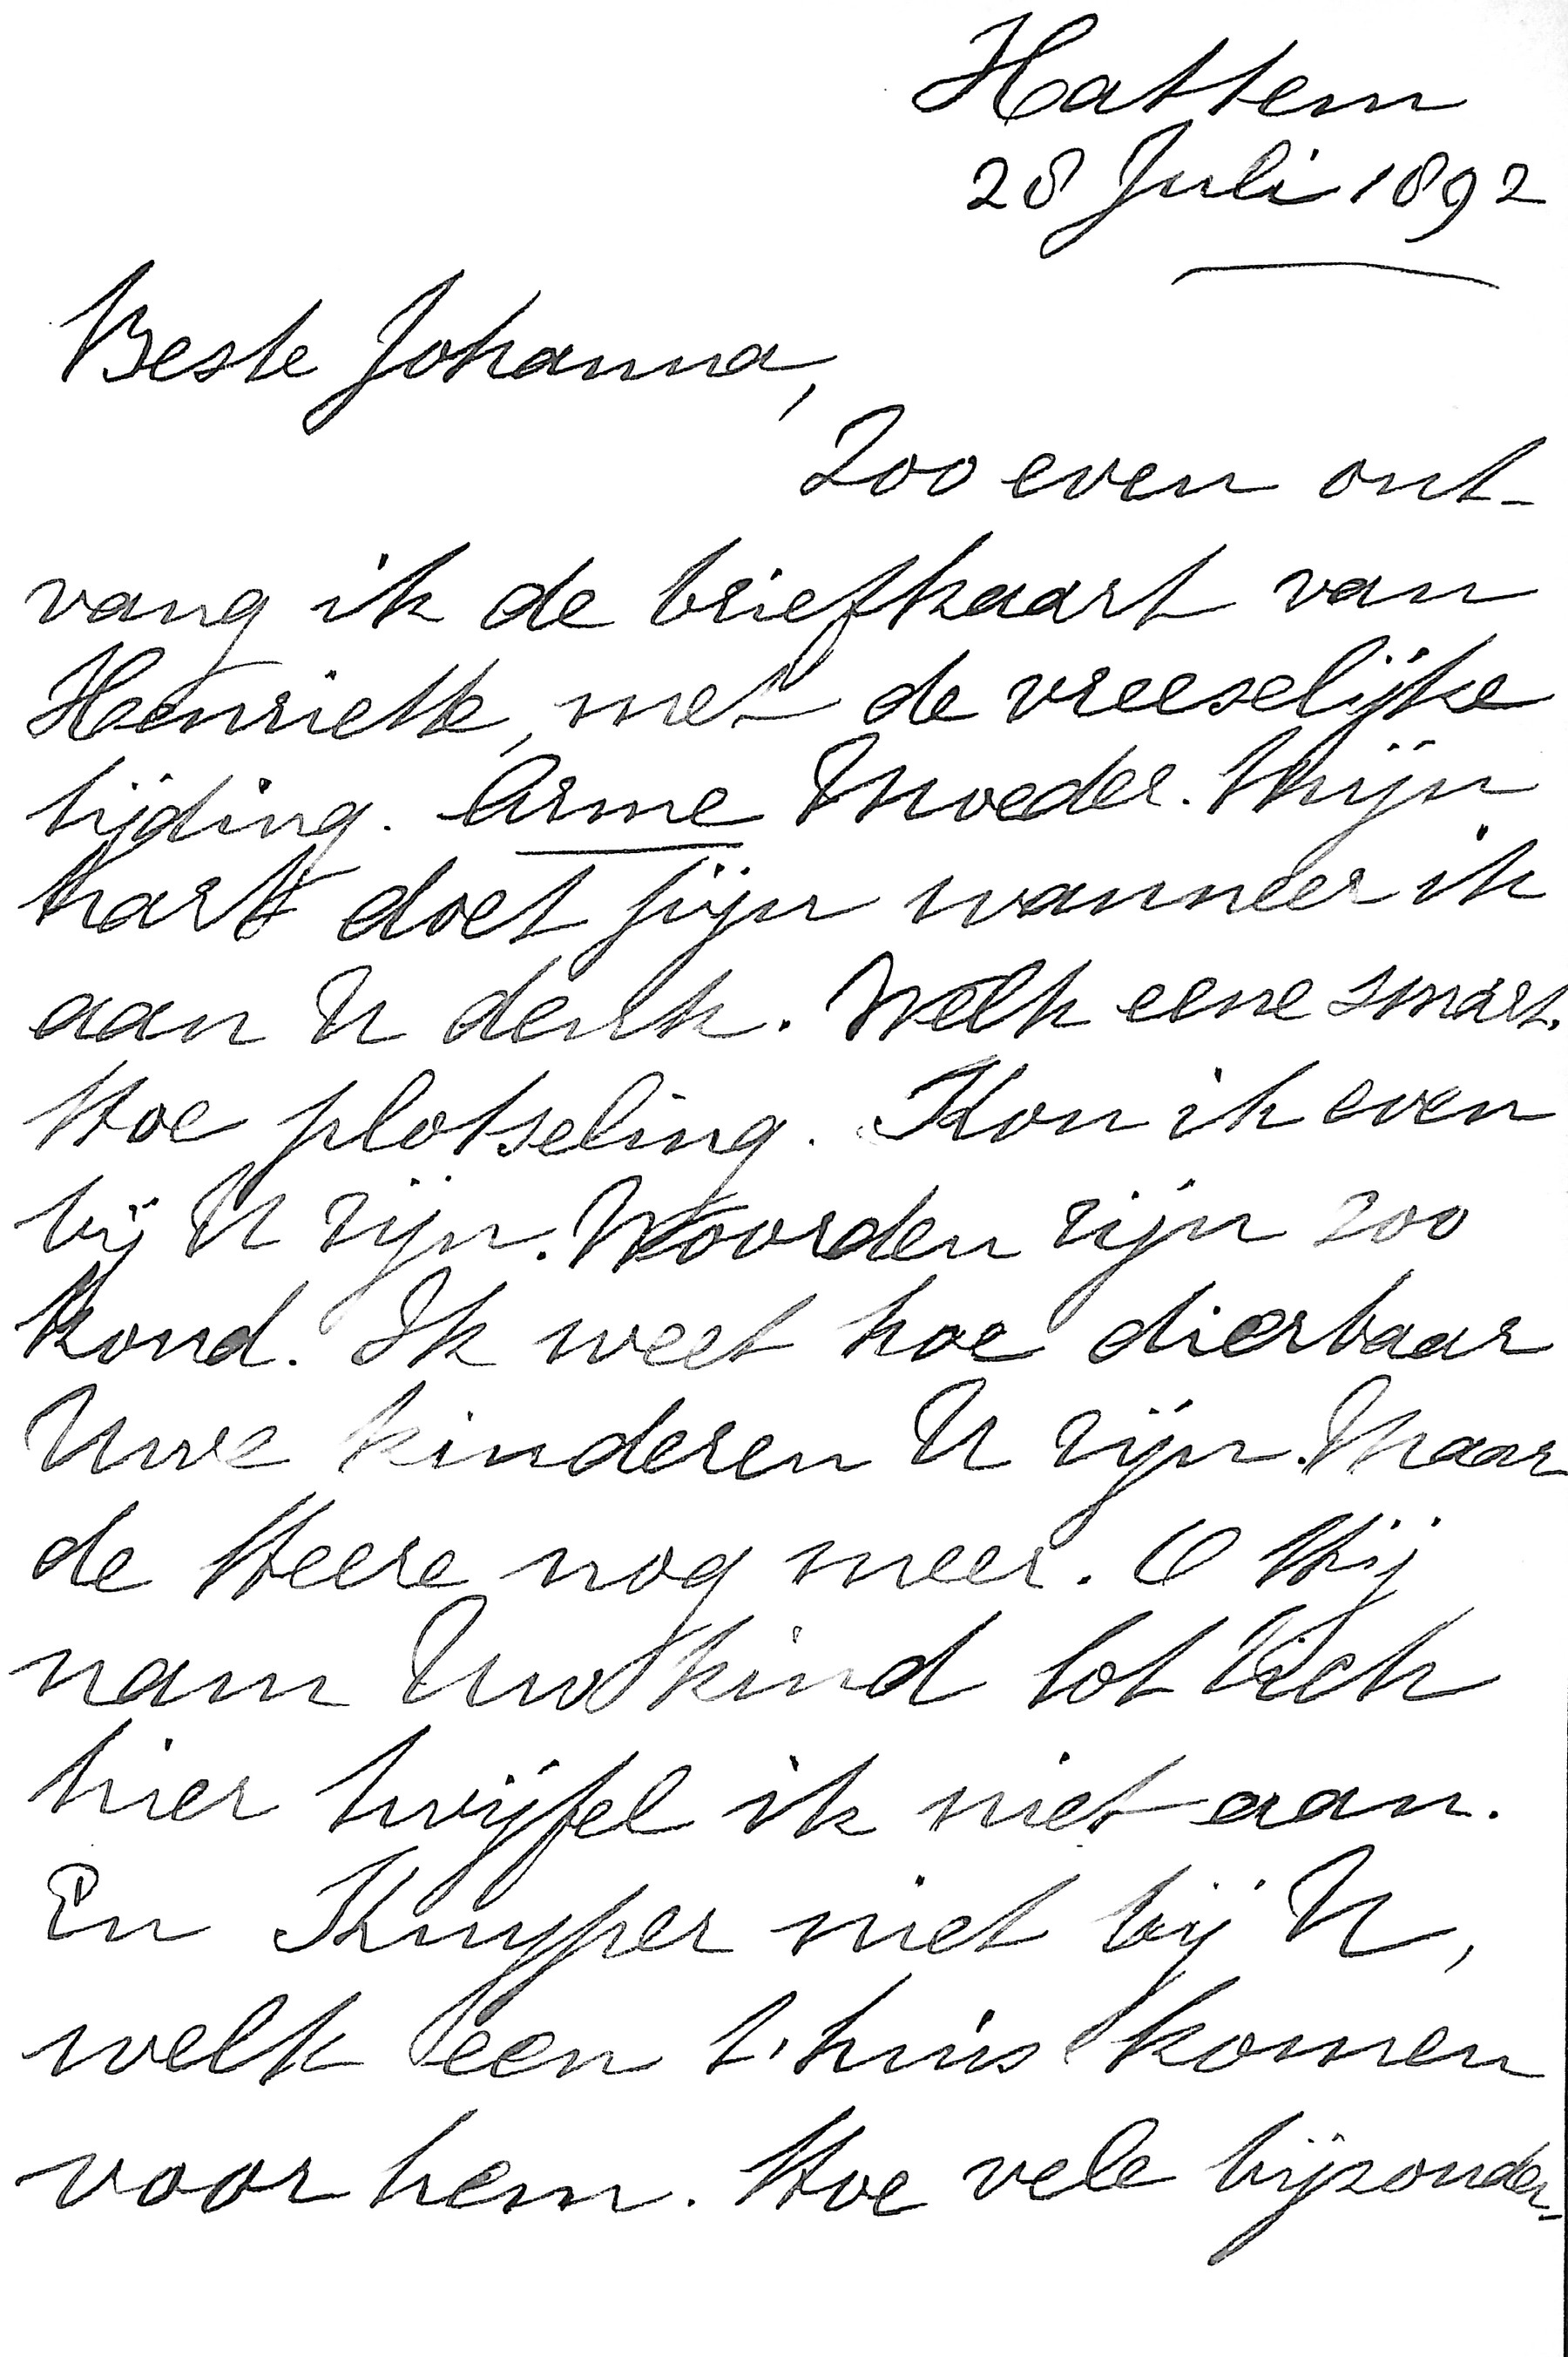 Hattem
28 Juli 1892
Beste Johanna,
Zoo even ont-
vang ik de briefkaart van
Henriette, met de vreeselijke
tijding. Arme Moeder. Mijn
hart doet pijn wanneer ik
aan U denk. Welk eene smart.
Hoe plotseling. Kon ik even
bij U zijn. Woorden zijn zoo
koud. Ik weet hoe dierbaar
Uwe kinderen U zijn. Maar
de Heere nog meer. O Hij
nam Uw kind tot Zich
hier twijfel ik niet aan.
En Kuyper niet bij U,
welk een t'huis komen
voor hem. Hoe vele bijzonder-